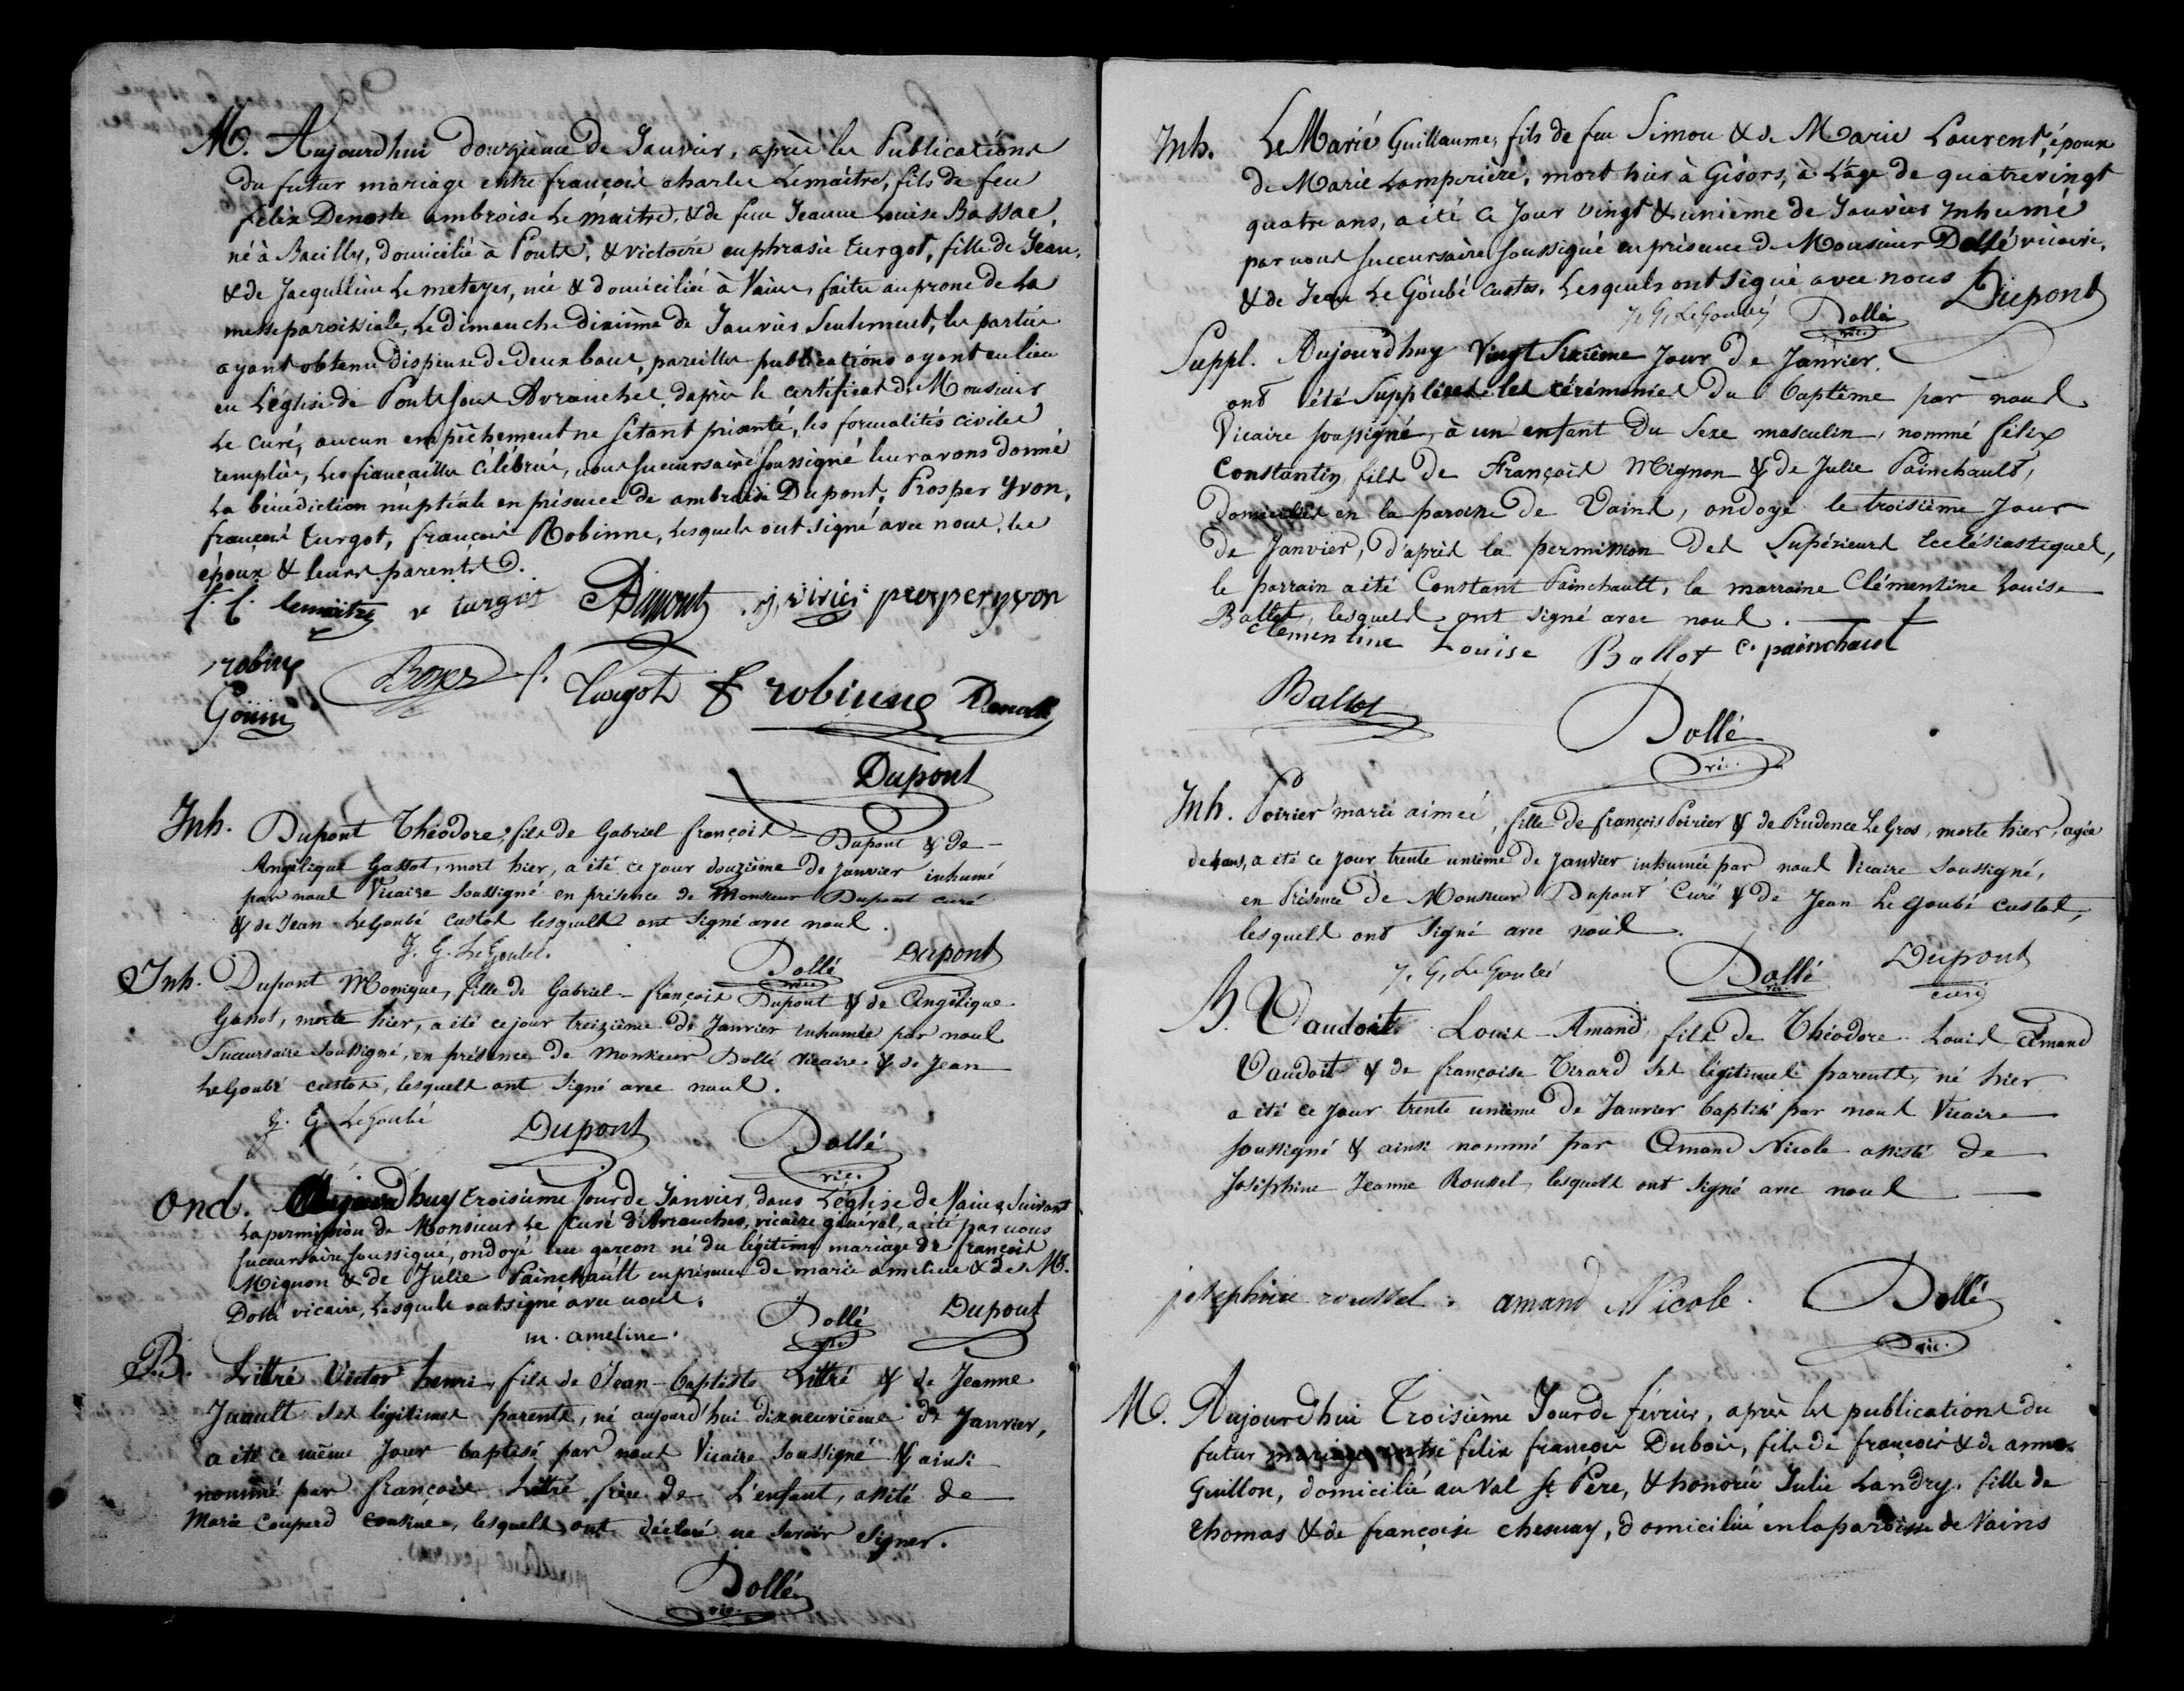 M. Aujourdhui douzième de Janvier, après les Publications
du futur mariage entre françois charles Lemaitre, fils de feu
felix Denoste ambroise Le maitre, & de feue Jeanne Louise Bassac,
né à Bacilly, domicilié à Ponts, & victoire euphrasie turgot, fille de Jean,
& de Jacqueline Le meteyer, née & domiciliée à Vains, faites au prone de La
messe paroissiale, Le dimanche dixième de Janvier Seulement, les parties
ayant obtenu dispense de deux bans, pareilles publications ayant eu lieu
en L'église de Ponts sous Avranches, d'après le certificat de Monsieur
Le curé, aucun empêchement ne s'étant présenté, les formalités civiles
remplies, Les fiançailles célébrées, nous succursaire soussigné leur avons donné
La bénédiction nuptiale en présence de ambroise Dupont, Prosper Yvon,
françois turgot, françois Robinne, Lesquels ont signé avec nous, les
époux & leurs parents.
f. C. lemaitre v turgot ADupont prosper yvon
robine Boyer f. Turgot f robinne Denoste
Gouin
Dupont
Inh. Dupont Théodore, fils de Gabriel françois Dupont & de
Angélique Gassot, mort hier, a été ce jour douzième de janvier inhumé
par nous Vicaire Soussigné en présence de Monsieur Dupont curé
& de Jean LeGoubé custos lesquels ont signé avec nous.
J. G. LeGoubé. Dollé vic. Dupont
Inh. Dupont Monique, fille de Gabriel-françois Dupont & de Angélique
Gassot, morte hier, a été ce jour treizième de Janvier inhumée par nous
Succursaire soussigné, en présence de Monsieur Dollé Vicaire & de Jean
LeGoubé custos, lesquels ont signé avec nous.
J. G. LeGoubé Dupont Dollé
vic.
Ond. Aujourdhuy troisième Jour de Janvier, dans L'église de Vains, Suivant
La permission de Monsieur Le Curé d'Avranches, vicaire général, a été par nous
succursaire soussigné, ondoyé un garçon né du légitime mariage de françois
Mignon & de Julie Painchault en présence de marie ameline & de Mr.
Dollé vicaire, Lesquels ont signé avec nous.
m. ameline. Dollé vic. Dupont
B. Littré Victor henri, fils de Jean-baptiste Littré & de Jeanne
Juault ses légitimes parents, né aujourd'hui dixneuvième de Janvier,
a été ce même Jour baptisé par nous Vicaire soussigné & ainsi
nommé par françois Littré frère de L'enfant, assité de
Marie Couperd cousine, lesquels ont déclaré ne savoir signer.
Dollé
vic.
Inh. Le Marié Guillaume, fils de feu Simon & de Marie Laurent, époux
de Marie Lamperière, mort hier à Gisors, à L'âge de quatrevingt
quatre ans, a été ce Jour vingt & unième de Janvier Inhumé
par nous succursaire soussigné en présence de Monsieur Dollé vicaire,
& de Jean Le Goubé custos, Lesquels ont signé avec nous Dupont
J. G. LeGoubé Dollé vic.
Suppl. Aujourdhuy Vingt Sixième Jour de Janvier,
ont été Suppléées les cérémonies du baptême par nous
Vicaire soussigné, à un enfant du Sexe masculin, nommé félix
Constantin, fils de François Mignon & de Julie Painchault,
domiciliés en la paroisse de Vains, ondoyé le troisième Jour
de Janvier, d'après la permission des Supérieurs Ecclésiastiques,
le parrain a été Constant Painchault, la marraine Clémentine Louise
Ballot, lesquels ont signé avec nous.
Clémentine Louise Ballot C. painchaut
Ballot Dollé
vic.
Inh. Poirier marie aimée, fille de françois Poirier & de Prudence LeGros, morte hier, agée
de 4 ans, a été ce jour trente unième de Janvier inhumée par nous Vicaire soussigné,
en Présence de Monsieur Dupont Curé & de Jean LeGoubé custos,
lesquels ont signé avec nous.
J. G. LeGoubé Dollé vic. Dupont
curé
B. Vaudoit Louis-Amand fils de Théodore Louis Amand
Vaudoit & de françoise Tirard ses légitimes parents, né hier
a été ce jour trente unième de Janvier baptisé par nous Vicaire
soussigné & ainsi nommé par Amand Nicole assisté de
Joséphine Jeanne Roussel, lesquels ont signé avec nous
josephine roussel. amand Nicole. Dollé
vic.
M. Aujourdhui troisième Jour de février, après les publications du
futur mariage entre felix françois Dubois, fils de françois & de anne
Guillon, domicilié au Val St Père, & honorée Julie Landry, fille de
thomas & de françoise chesnay, domiciliée en la paroisse de Vains